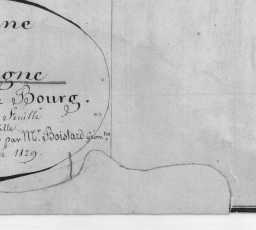 ne
gne
Bourg.
Feuille
par Mr. Boistard Géom.
1829.